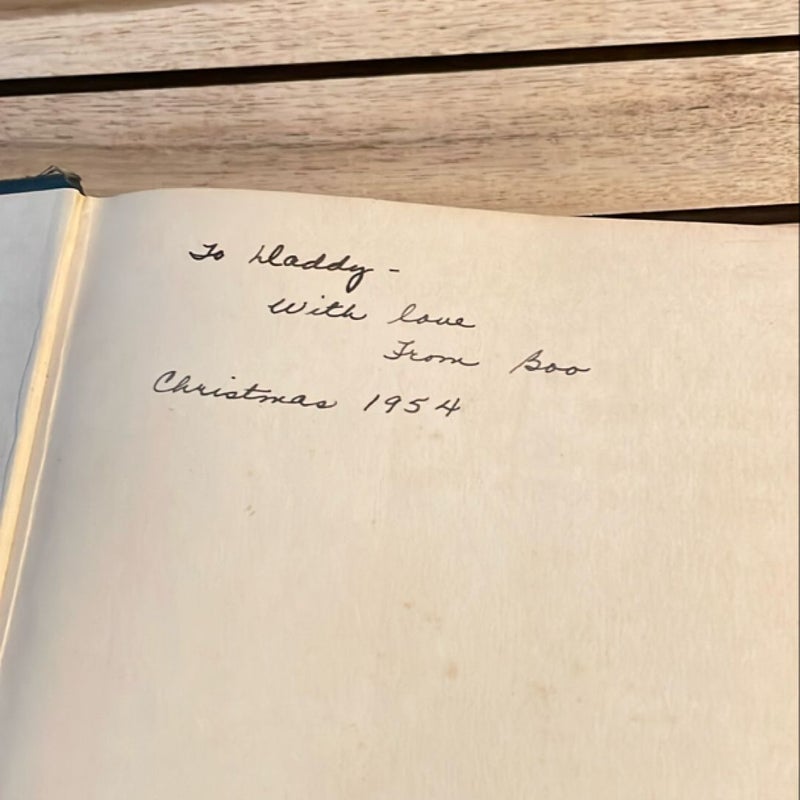 To Daddy -
With love
From Boo
Christmas 1954